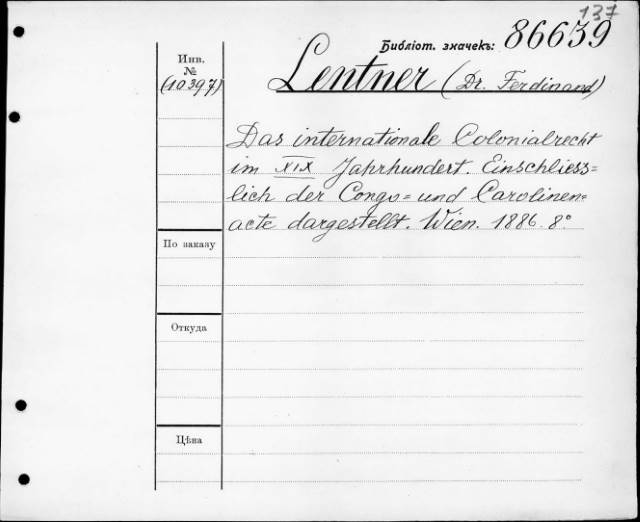 137
Библіот. значекъ: 86639
Инв.
№
(10397)
Lentner (Dr. Ferdinand)
Das internationale Colonialrecht
im XIX Jahrhundert. Einschliess=
lich der Congo= und Carolinen=
acte dargestellt. Wien. 1886. 8º
По заказу
Откуда
Цѣна